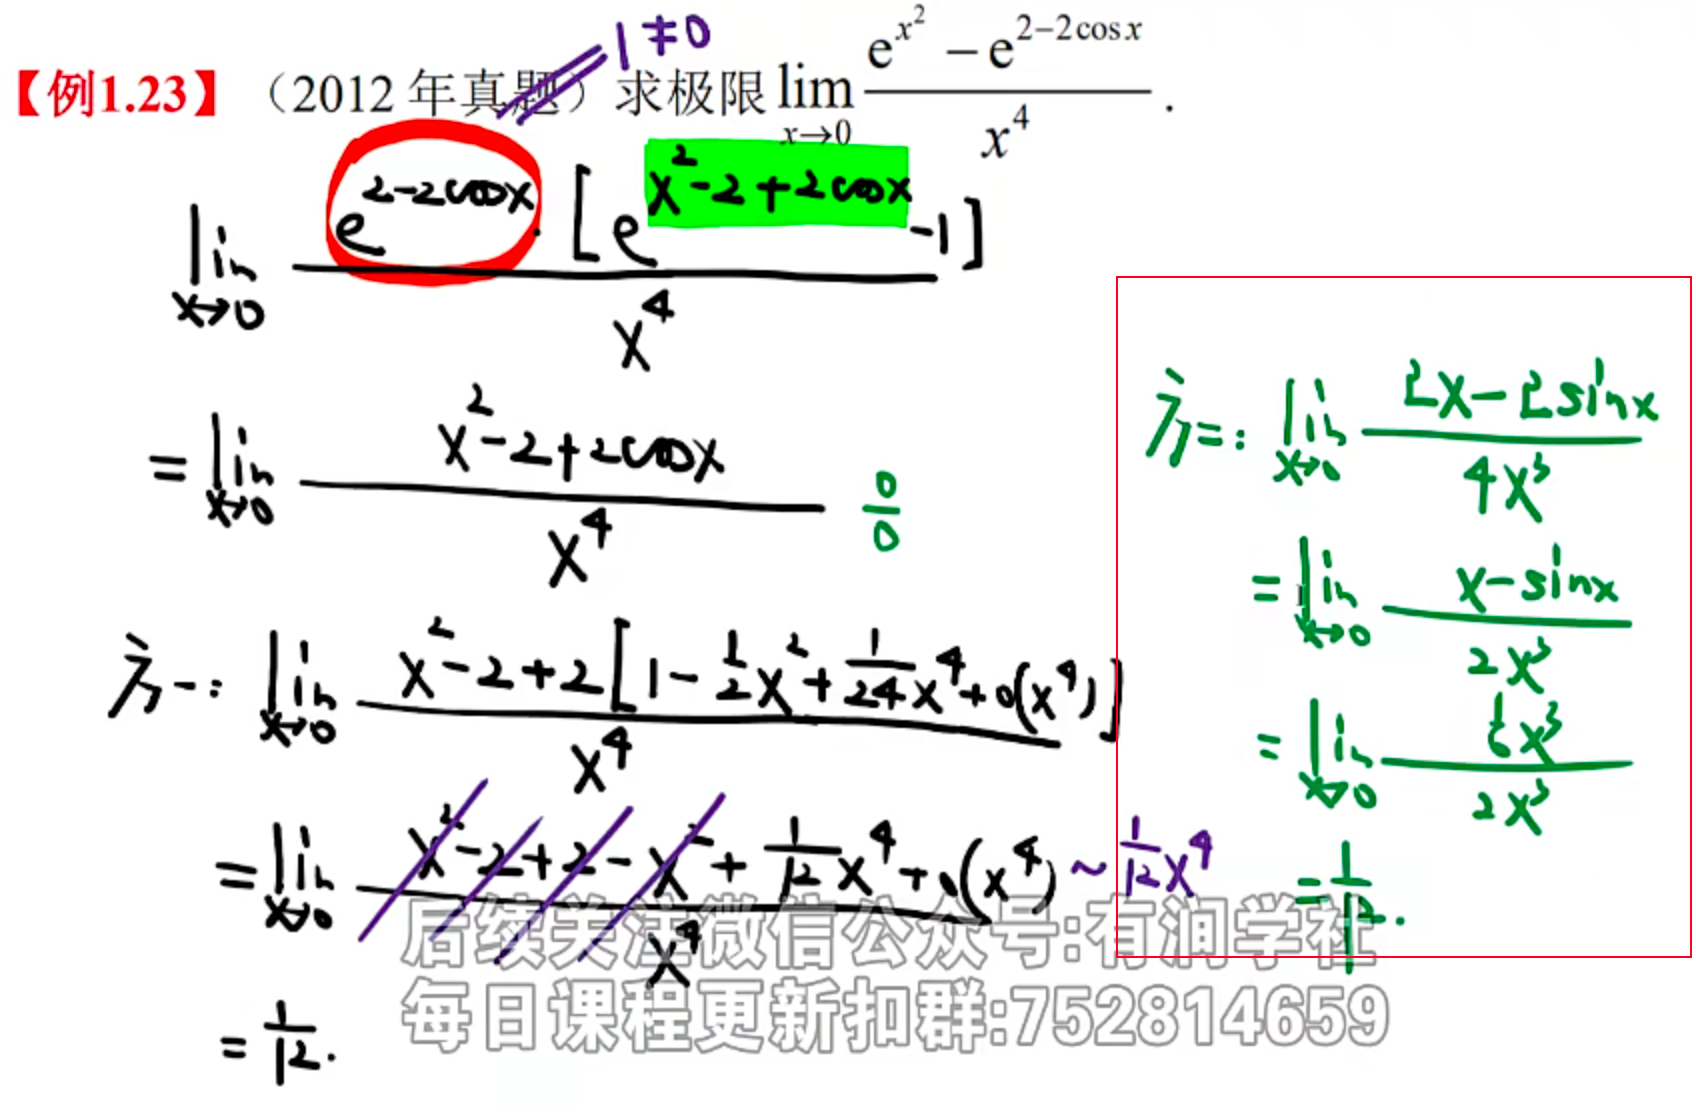 【例1.23】（2012年真题）求极限 lim x→0 (e^{x^2} − e^{2−2cosx}) / x^4 .
1≠0
lim x→0 e^{2-2cosx} · [e^{x^2-2+2cosx} -1] / x^4
= lim x→0 (x^2-2+2cosx) / x^4
0/0
方一: lim x→0 (x^2-2+2[1-1/2x^2+1/24x^4+o(x^4)]) / x^4
= lim x→0 (x^2-2+2-x^2+1/12x^4+o(x^4)) / x^4
~1/12x^4
= 1/12.
方二: lim x→0 (2x-2sinx) / 4x^3
= lim x→0 (x-sinx) / 2x^3
= lim x→0 (1/6x^3) / 2x^3
= 1/12.
后续关注微信公众号:有润学社
每日课程更新扣群:752814659